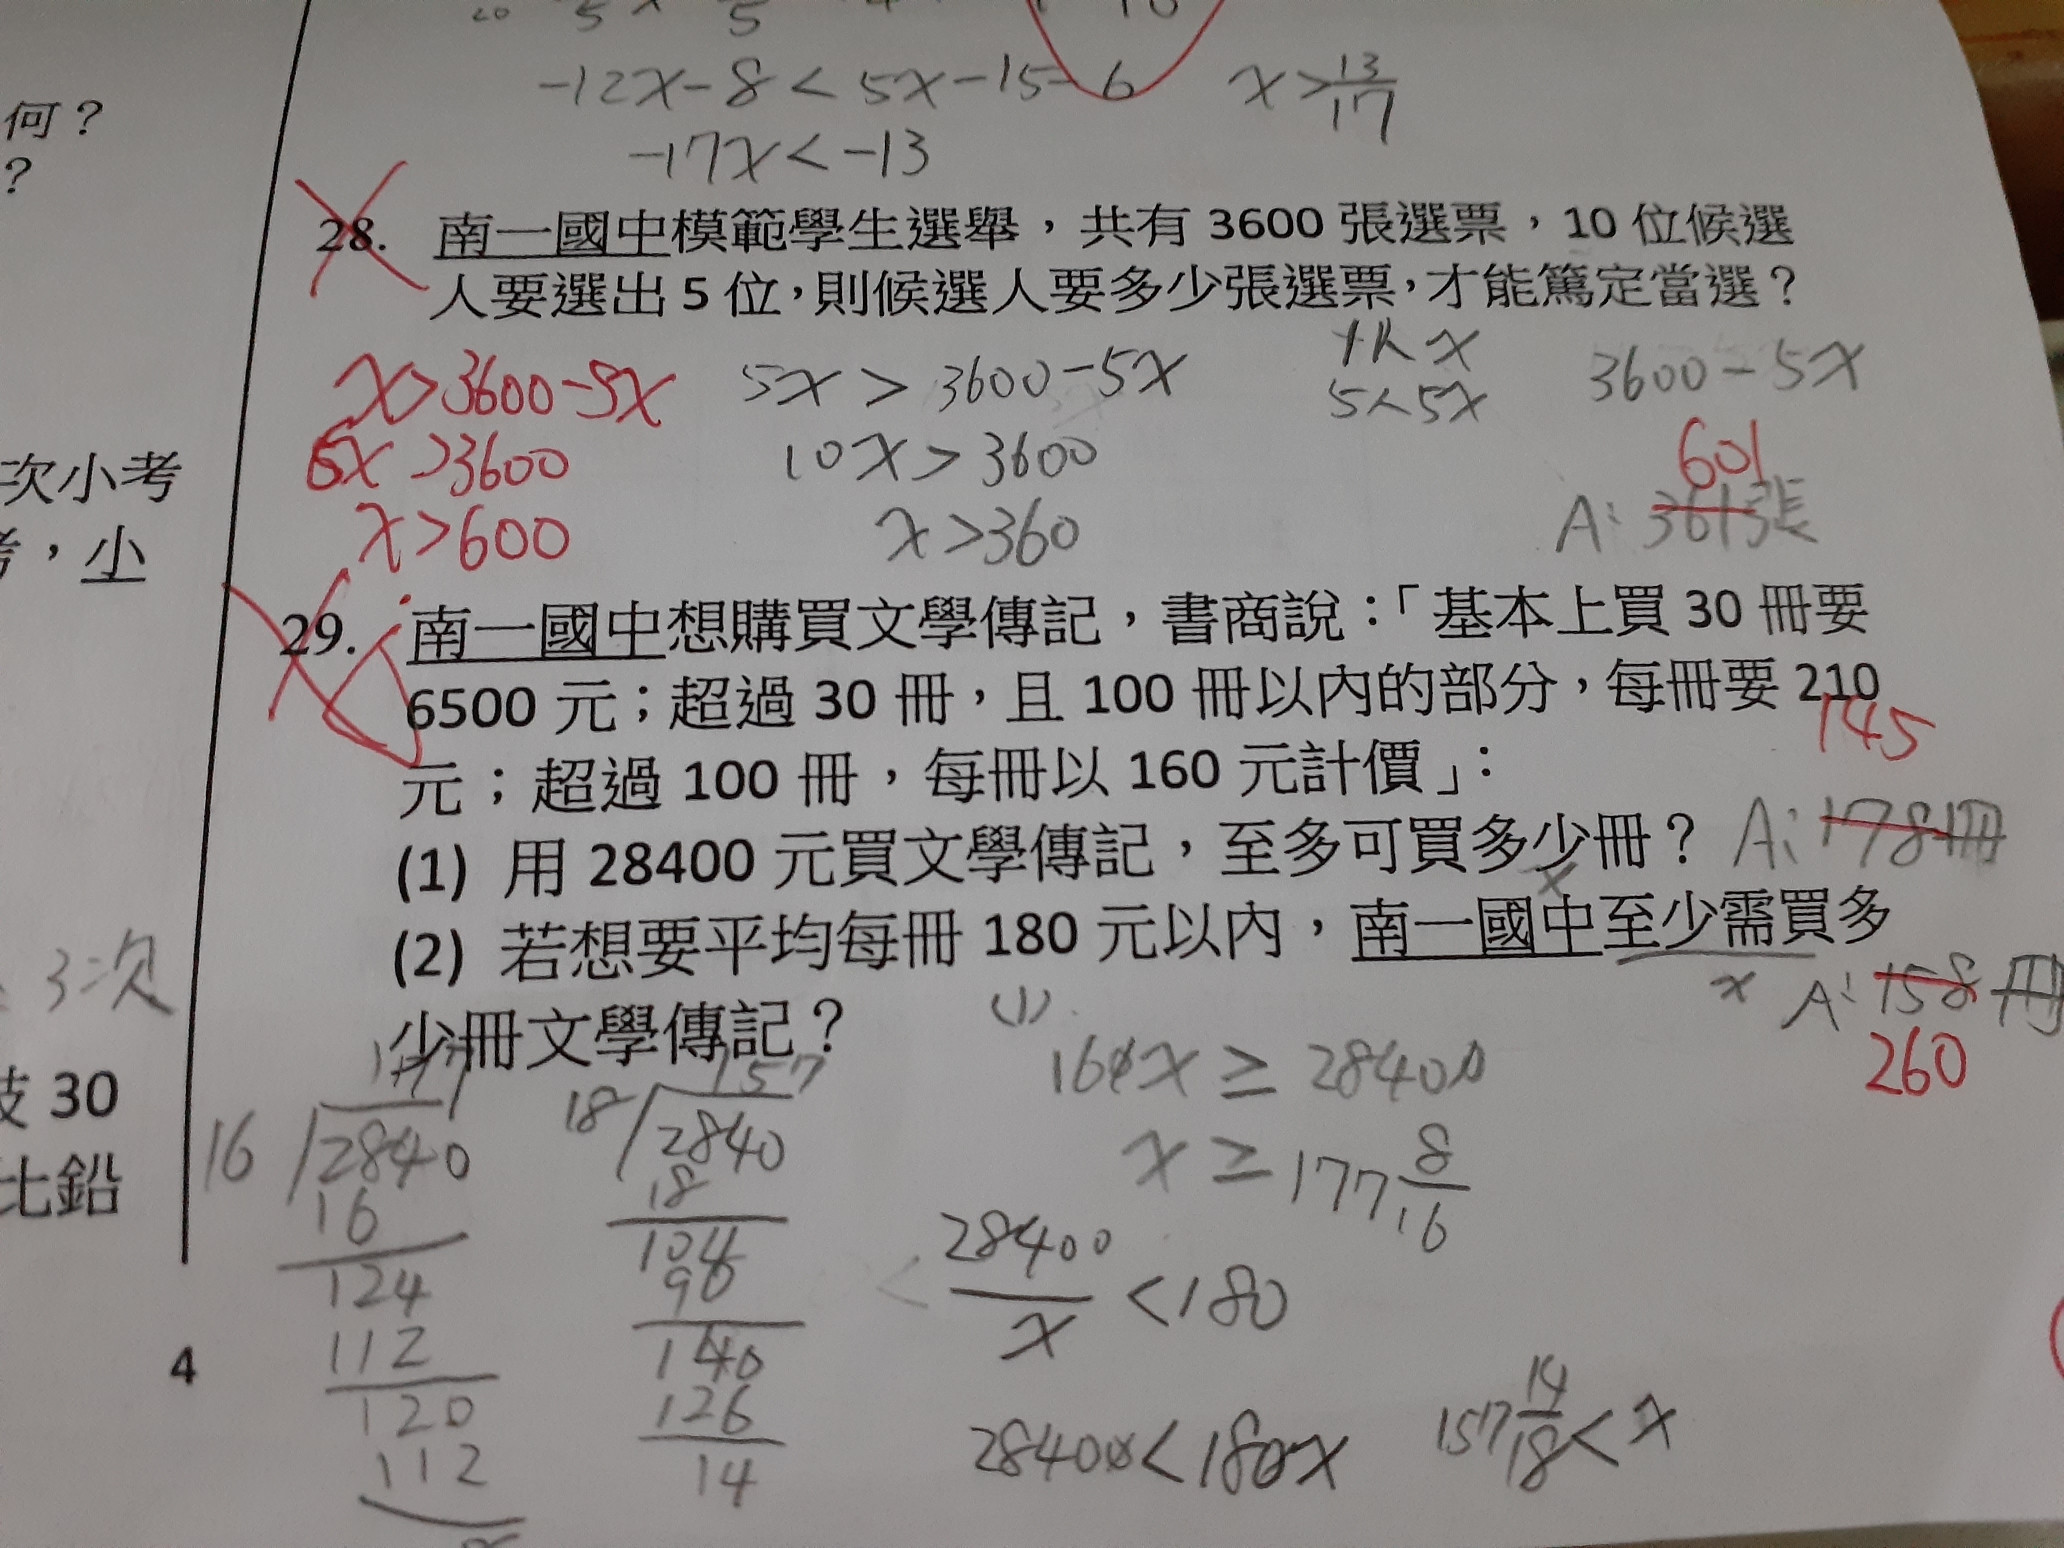 -12x-8<5x-15=6
x>13/17
-17x<-13
何？
？
28. 南一國中模範學生選舉，共有 3600 張選票，10 位候選
人要選出 5 位，則候選人要多少張選票，才能篤定當選？
x>3600-5x
5x > 3600-5x
3600-5x
6x>3600
10x>3600
601
x>600
x>360
A: 361張
次小考
，小
29. 南一國中想購買文學傳記，書商說：「基本上買 30 冊要
6500 元；超過 30 冊，且 100 冊以內的部分，每冊要 210
145
元；超過 100 冊，每冊以 160 元計價」：
(1) 用 28400 元買文學傳記，至多可買多少冊？ A: 178冊
x
(2) 若想要平均每冊 180 元以內，南一國中至少需買多
x A: 158冊
260
少冊文學傳記？
3次
30
比鉛
4
(1)
160x ≥ 28400
x ≥ 177 8/16
177
16 2840
16
124
112
120
112
157
18 2840
18
104
90
140
126
14
28400/x <180
28400<180x
157 14/18 < x